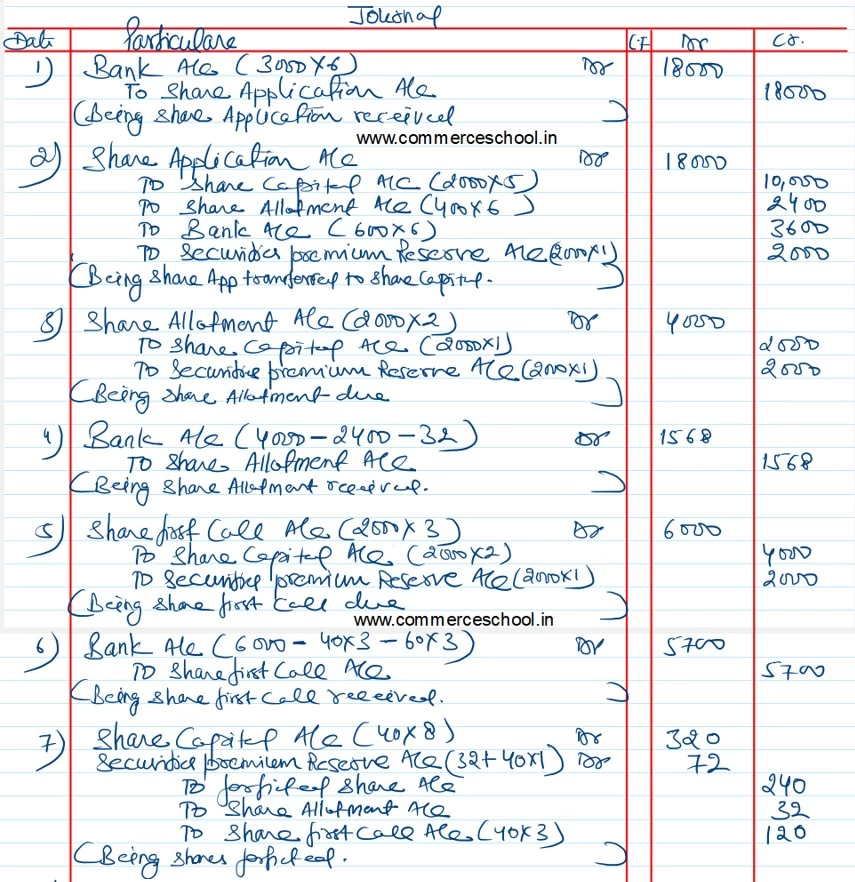 Journal
Date Particulars L.F Dr Cr.
1) Bank A/c (3000×6) Dr 18000
To Share Application A/c 18000
(Being share Application received)
www.commerceschool.in
2) Share Application A/c Dr 18000
To Share Capital A/c (2000×5) 10,000
To Share Allotment A/c (400×6) 2400
To Bank A/c (600×6) 3600
To Securities premium Reserve A/c (2000×1) 2000
(Being share App transferred to share Capital.)
3) Share Allotment A/c (2000×2) Dr 4000
To Share Capital A/c (2000×1) 2000
To Securities premium Reserve A/c (2000×1) 2000
(Being share Allotment due)
4) Bank A/c (4000-2400-32) Dr 1568
To Share Allotment A/c 1568
(Being share Allotment received.)
5) Share first Call A/c (2000×3) Dr 6000
To Share Capital A/c (2000×2) 4000
To Securities premium Reserve A/c (2000×1) 2000
(Being share first call due)
www.commerceschool.in
6) Bank A/c (6000-40×3-60×3) Dr 5700
To Share first Call A/c 5700
(Being share first call received.)
7) Share Capital A/c (40×8) Dr 320
Securities premium Reserve A/c (32+40×1) Dr 72
To forfeited share A/c 240
To Share Allotment A/c 32
To Share first Call A/c (40×3) 120
(Being shares forfeited.)